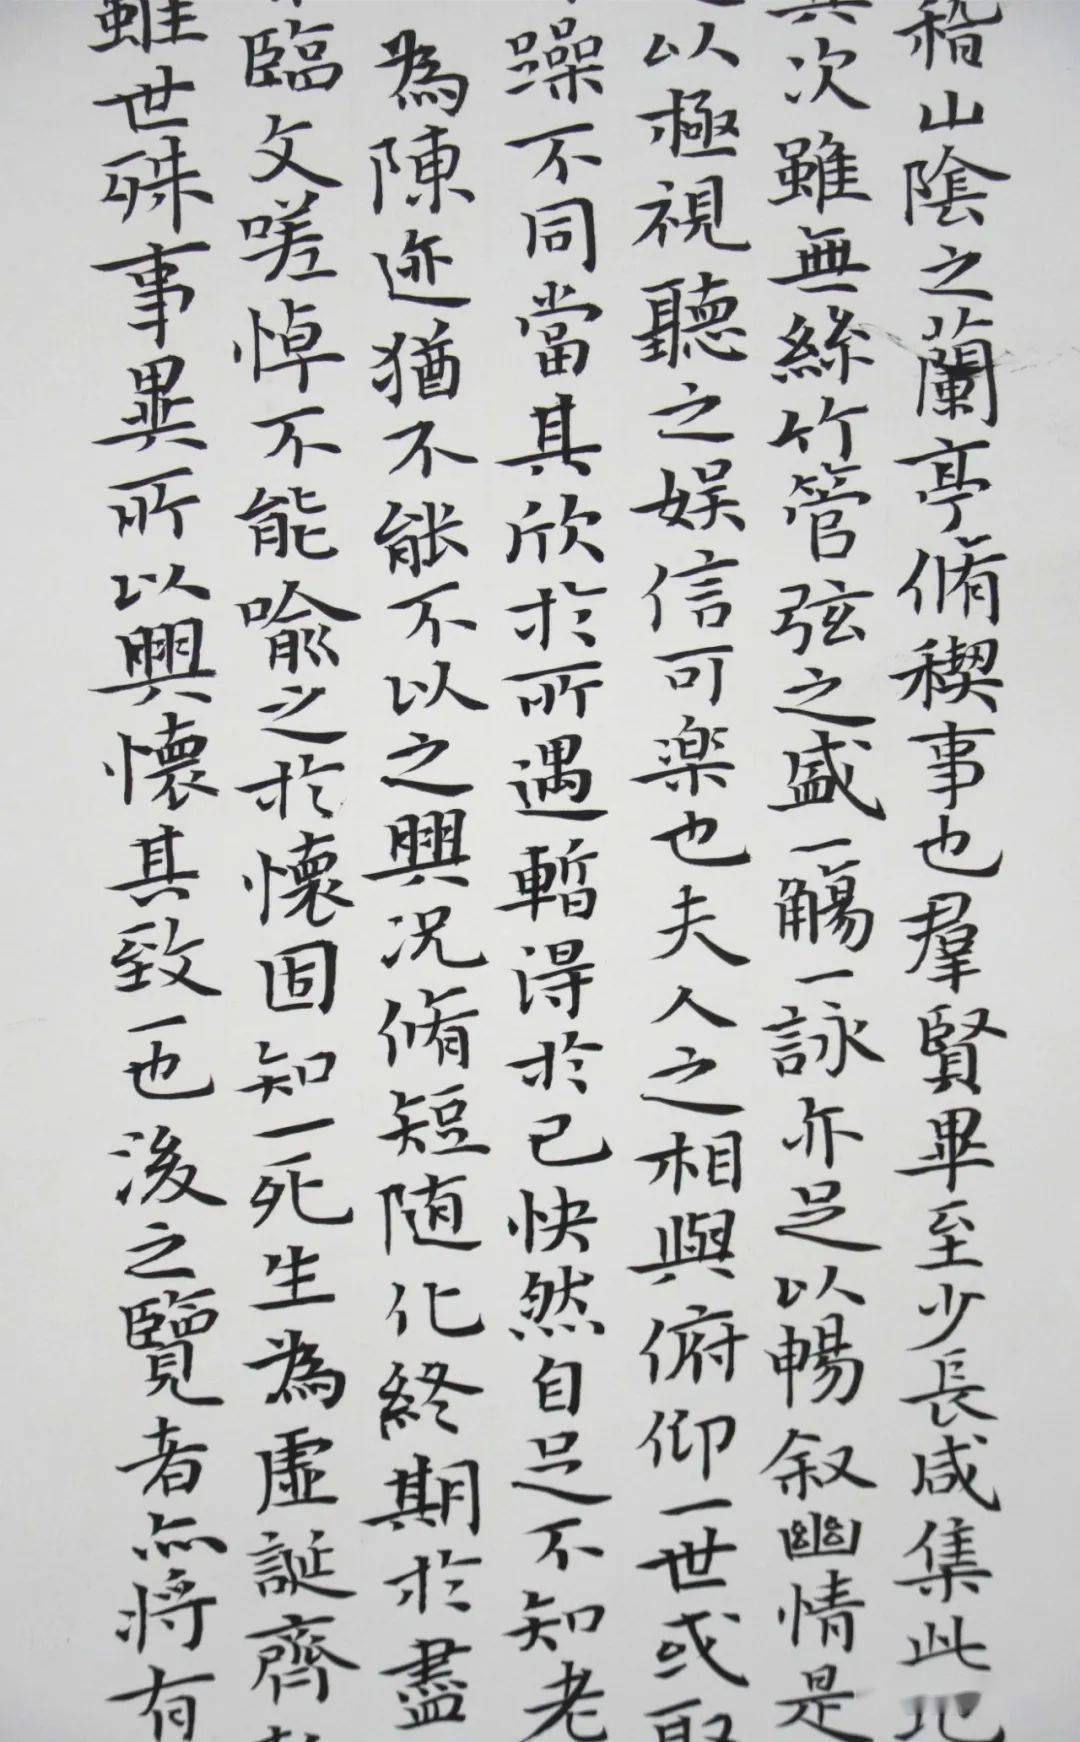 稽山陰之蘭亭脩稧事也羣賢畢至少長咸集此地
其次雖無絲竹管弦之盛一觴一詠亦足以暢叙幽情是
以極視聽之娱信可楽也夫人之相與俯仰一世或取
躁不同當其欣於所遇暫得於己快然自足不知老
為陳迹猶不能不以之興況脩短随化終期於盡
臨文嗟悼不能喻之於懷固知一死生為虚誕齊
雖世殊事異所以興懷其致一也後之覽者亦將有